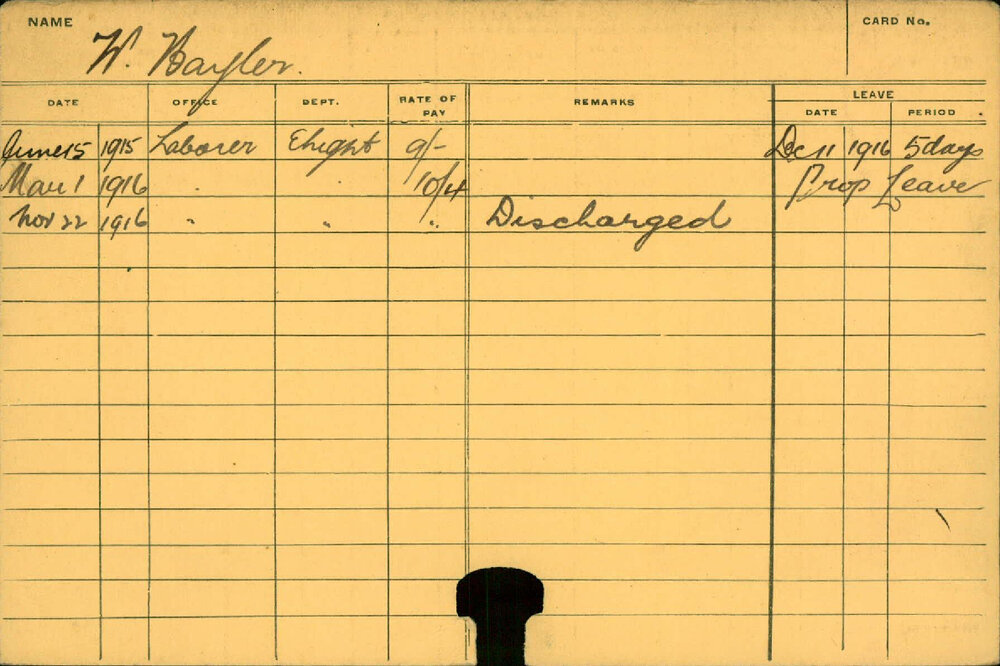 NAME CARD No.
W. Hayler.
DATE OFFICE DEPT. RATE OF PAY REMARKS LEAVE
DATE PERIOD
June 15 1915 Laborer Elright 9/- Dec 11 1916 5 days
Mar 1 1916 " 10/4 Prop Leave
Nov 22 1916 " " " Discharged